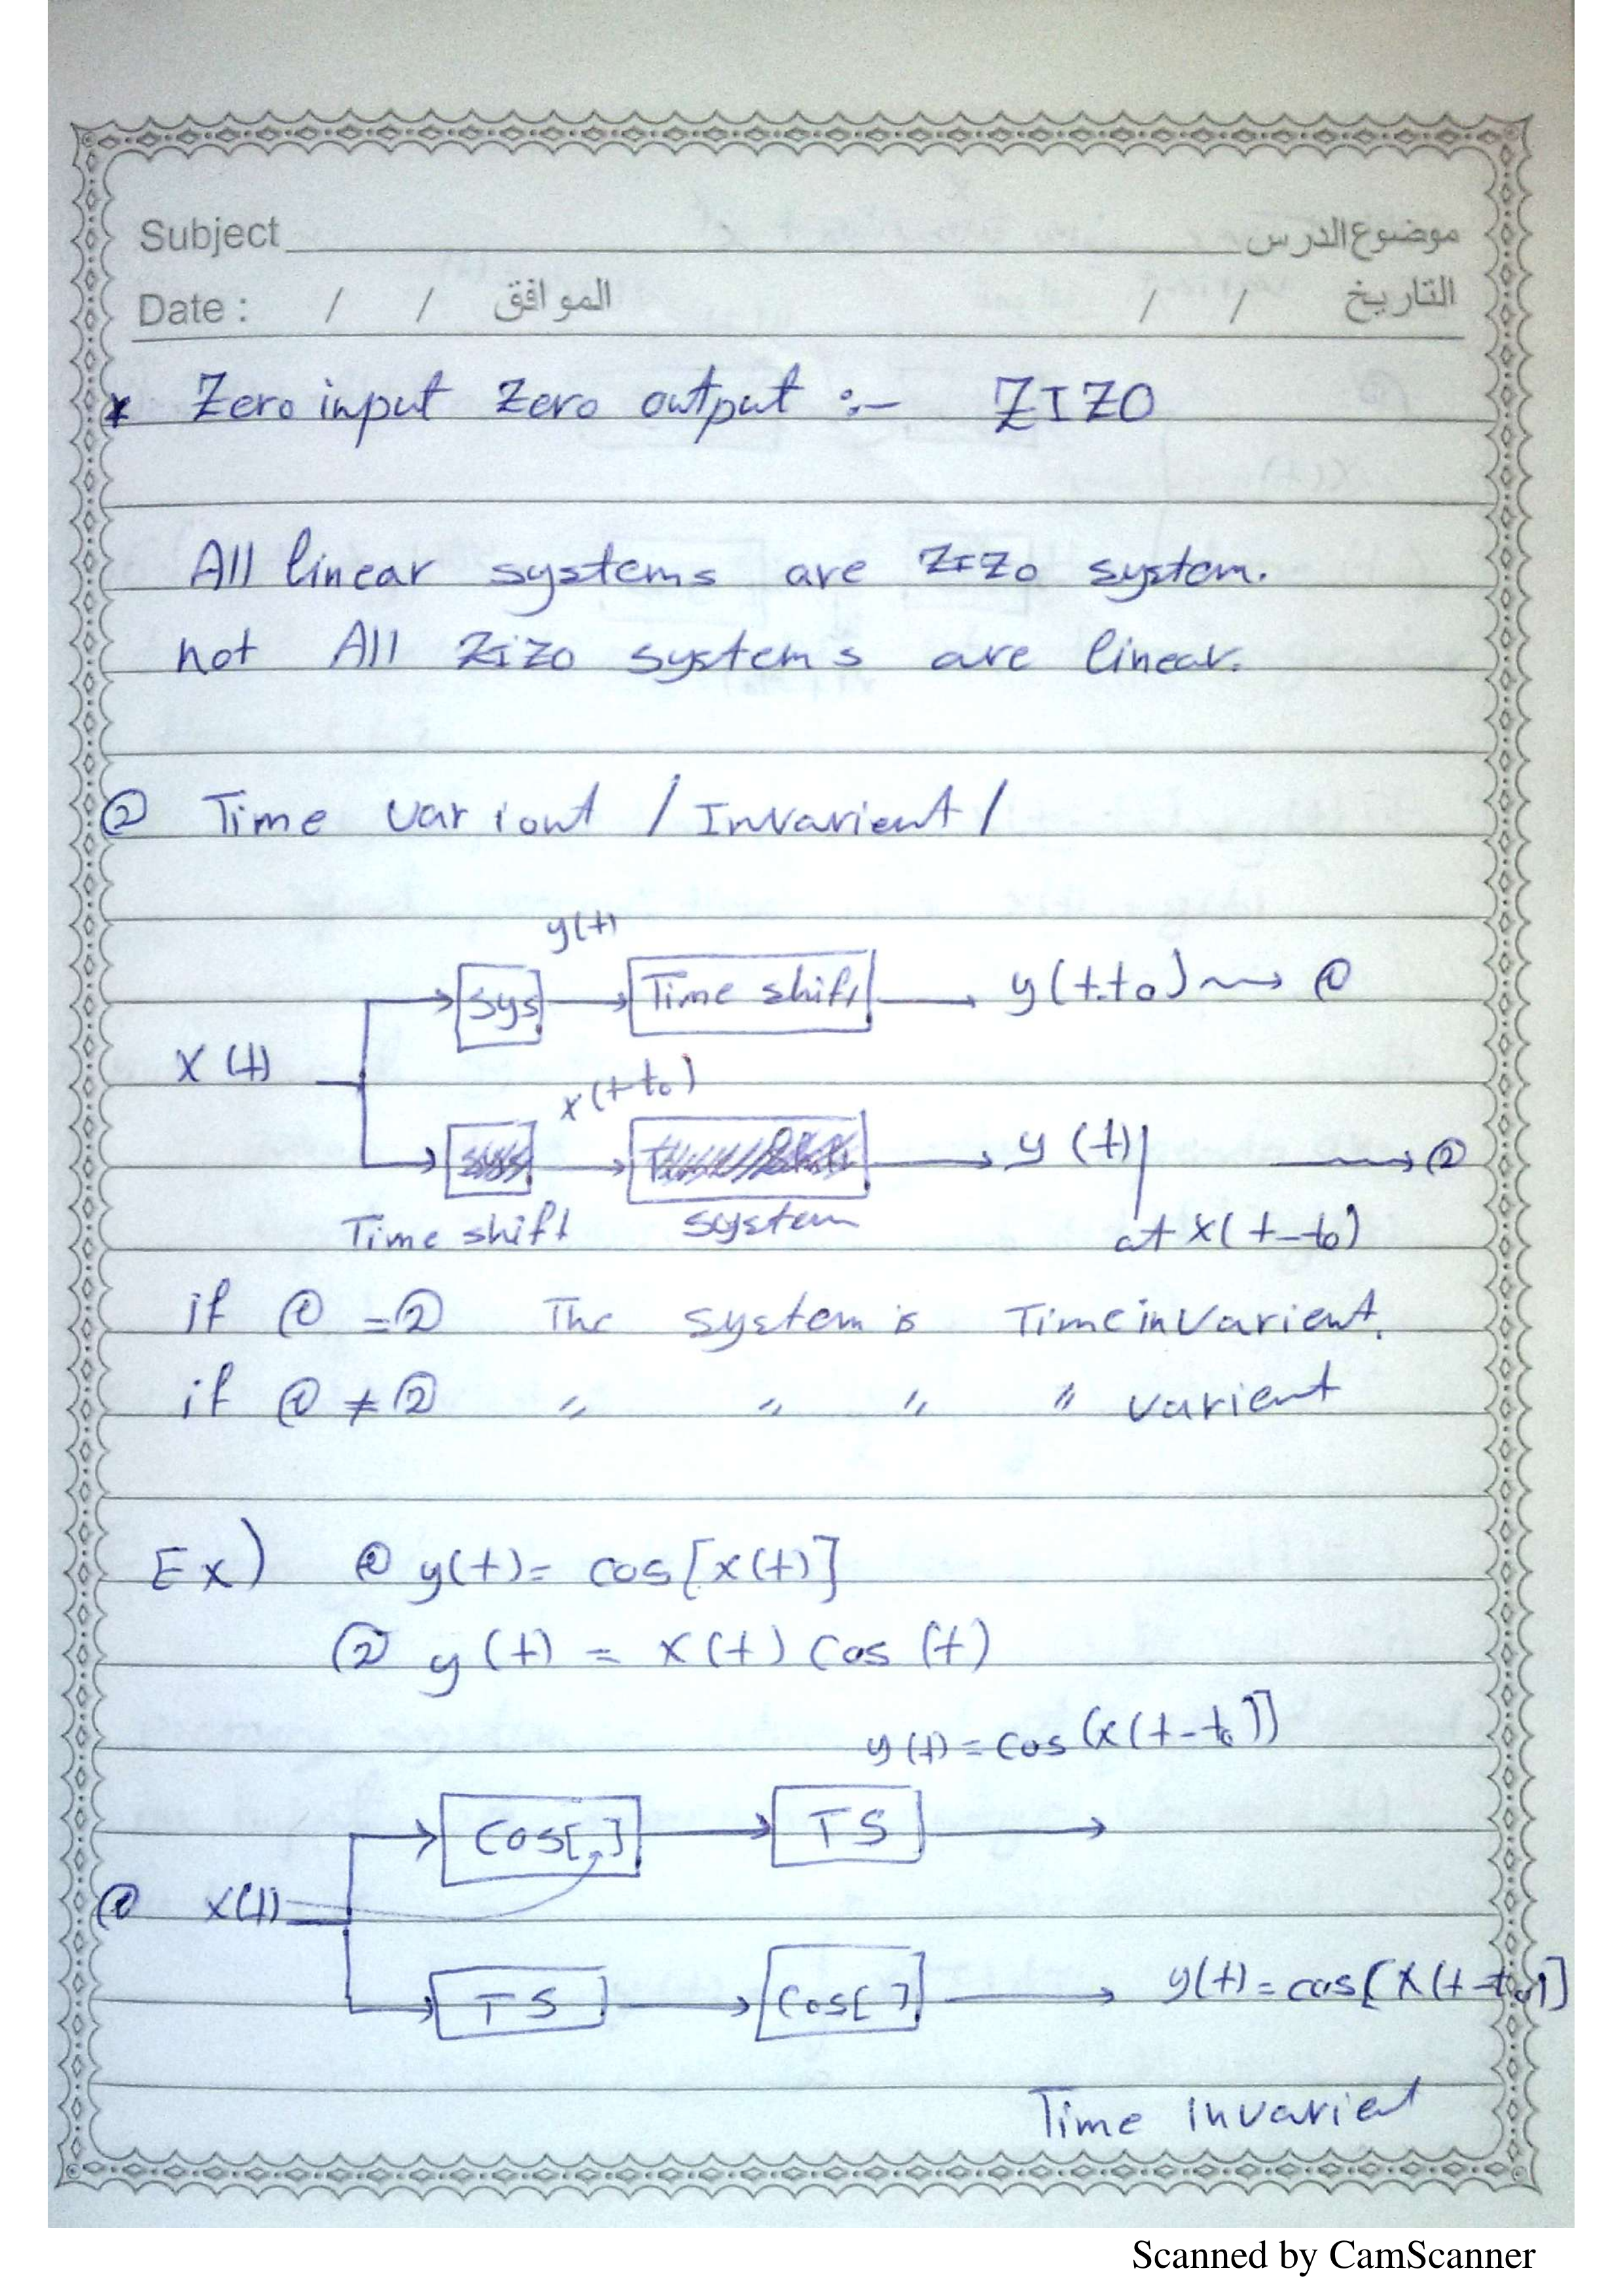 Subject موضوع الدرس
Date : / / الموافق / / التاريخ
* Zero input Zero output :- ZIZO
All linear systems are ZIZO system.
not All ZIZO systems are linear.
② Time variont / Invarient /
y(t)
sys Time shift y(t-t₀) ①
x(t)
x(t-t₀)
y(t)| ②
Time shift system at x(t-t₀)
if ① = ② The system is Time invarient.
if ① ≠ ② " " " " varient
Ex) ① y(t) = cos[x(t)]
② y(t) = x(t) cos(t)
y(t) = cos(x(t-t₀))
cos[.] TS
① x(t)
TS cos[ ] y(t) = cos[x(t-t₀)]
Time invarient
Scanned by CamScanner